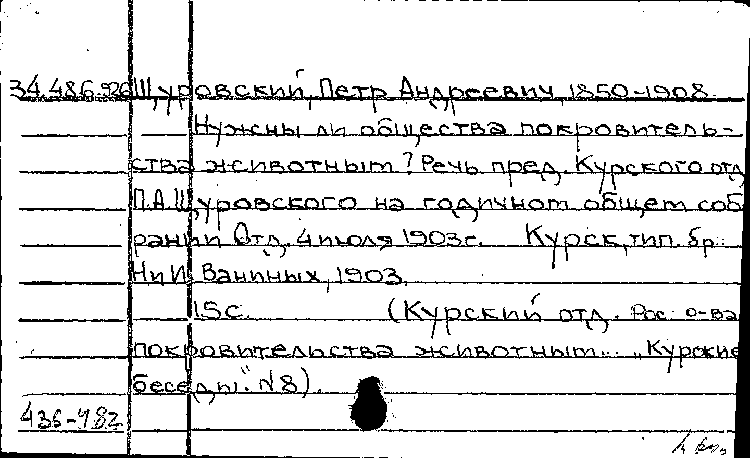 34.486-926 Щуровский, Петр Андреевич, 1850-1908.
Нужны ли общества покровитель-
ства животным? Речь пред. Курского отд
П.А.Щуровского на годичном общем соб
рании Отд. 4 июля 1903г. Курск, тип. бр.
Н и И Ваниных, 1903.
15с. (Курский отд. Рос. о-ва
покровительства животным... „Курские
беседы". №8).
436-782